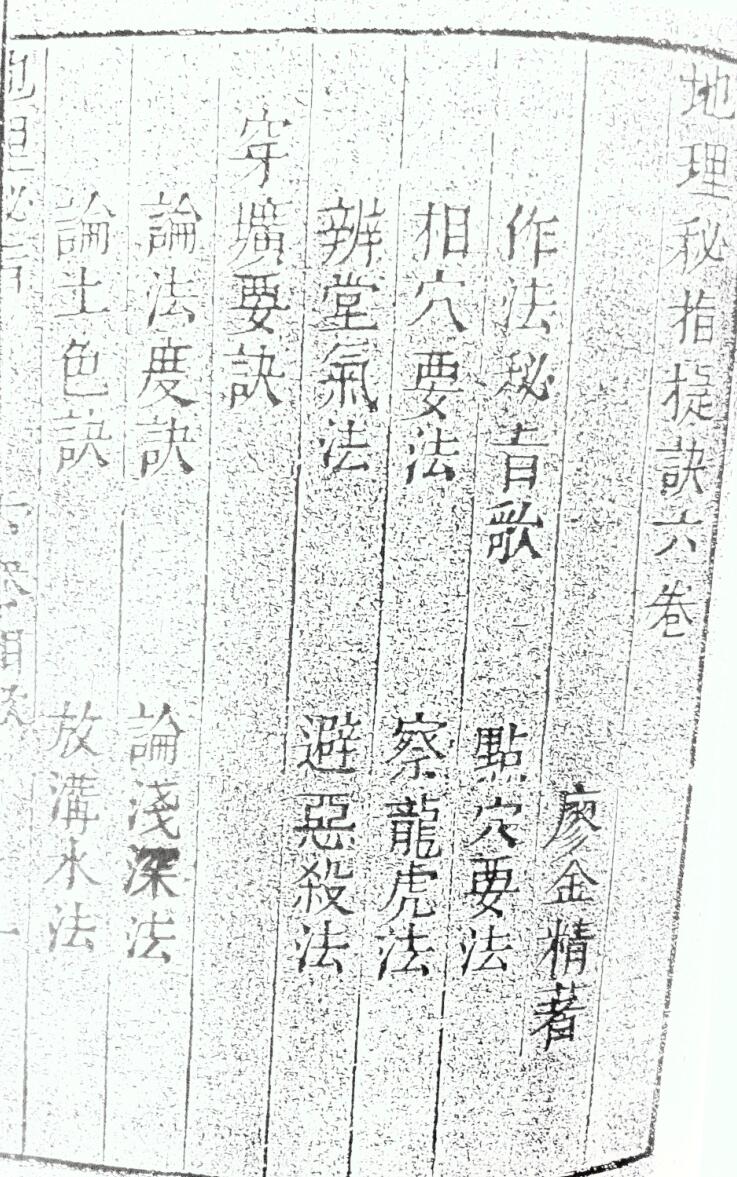 地理秘指㨗訣六卷
廖金精著
作法秘旨歌 點穴要法
相穴要法 察龍虎法
辨堂氣法 避惡殺法
穿壙要訣
論法度訣 論淺深法
論土色訣 放溝水法